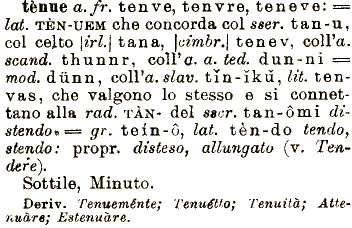 tènue a. fr. tenve, tenvre, teneve: =
lat. TÈN-UEM che concorda col sser. tan-u,
col celto |irl.| tana, |cimbr.| tenev, coll'a.
scand. thunnr, coll'a. a. ted. dun-ni =
mod. dünn, coll'a. slav. tĭn-ĭkŭ, lit. ten-
vas, che valgono lo stesso e si connet-
tano alla rad. TÀN- del sscr. tan-ômi di-
stendo, = gr. teín-ô, lat. tèn-do tendo,
stendo: propr. disteso, allungato (v. Ten-
dere).
Sottile, Minuto.
Deriv. Tenueménte; Tenuétto; Tenuità; Atte-
nuàre; Estenuàre.